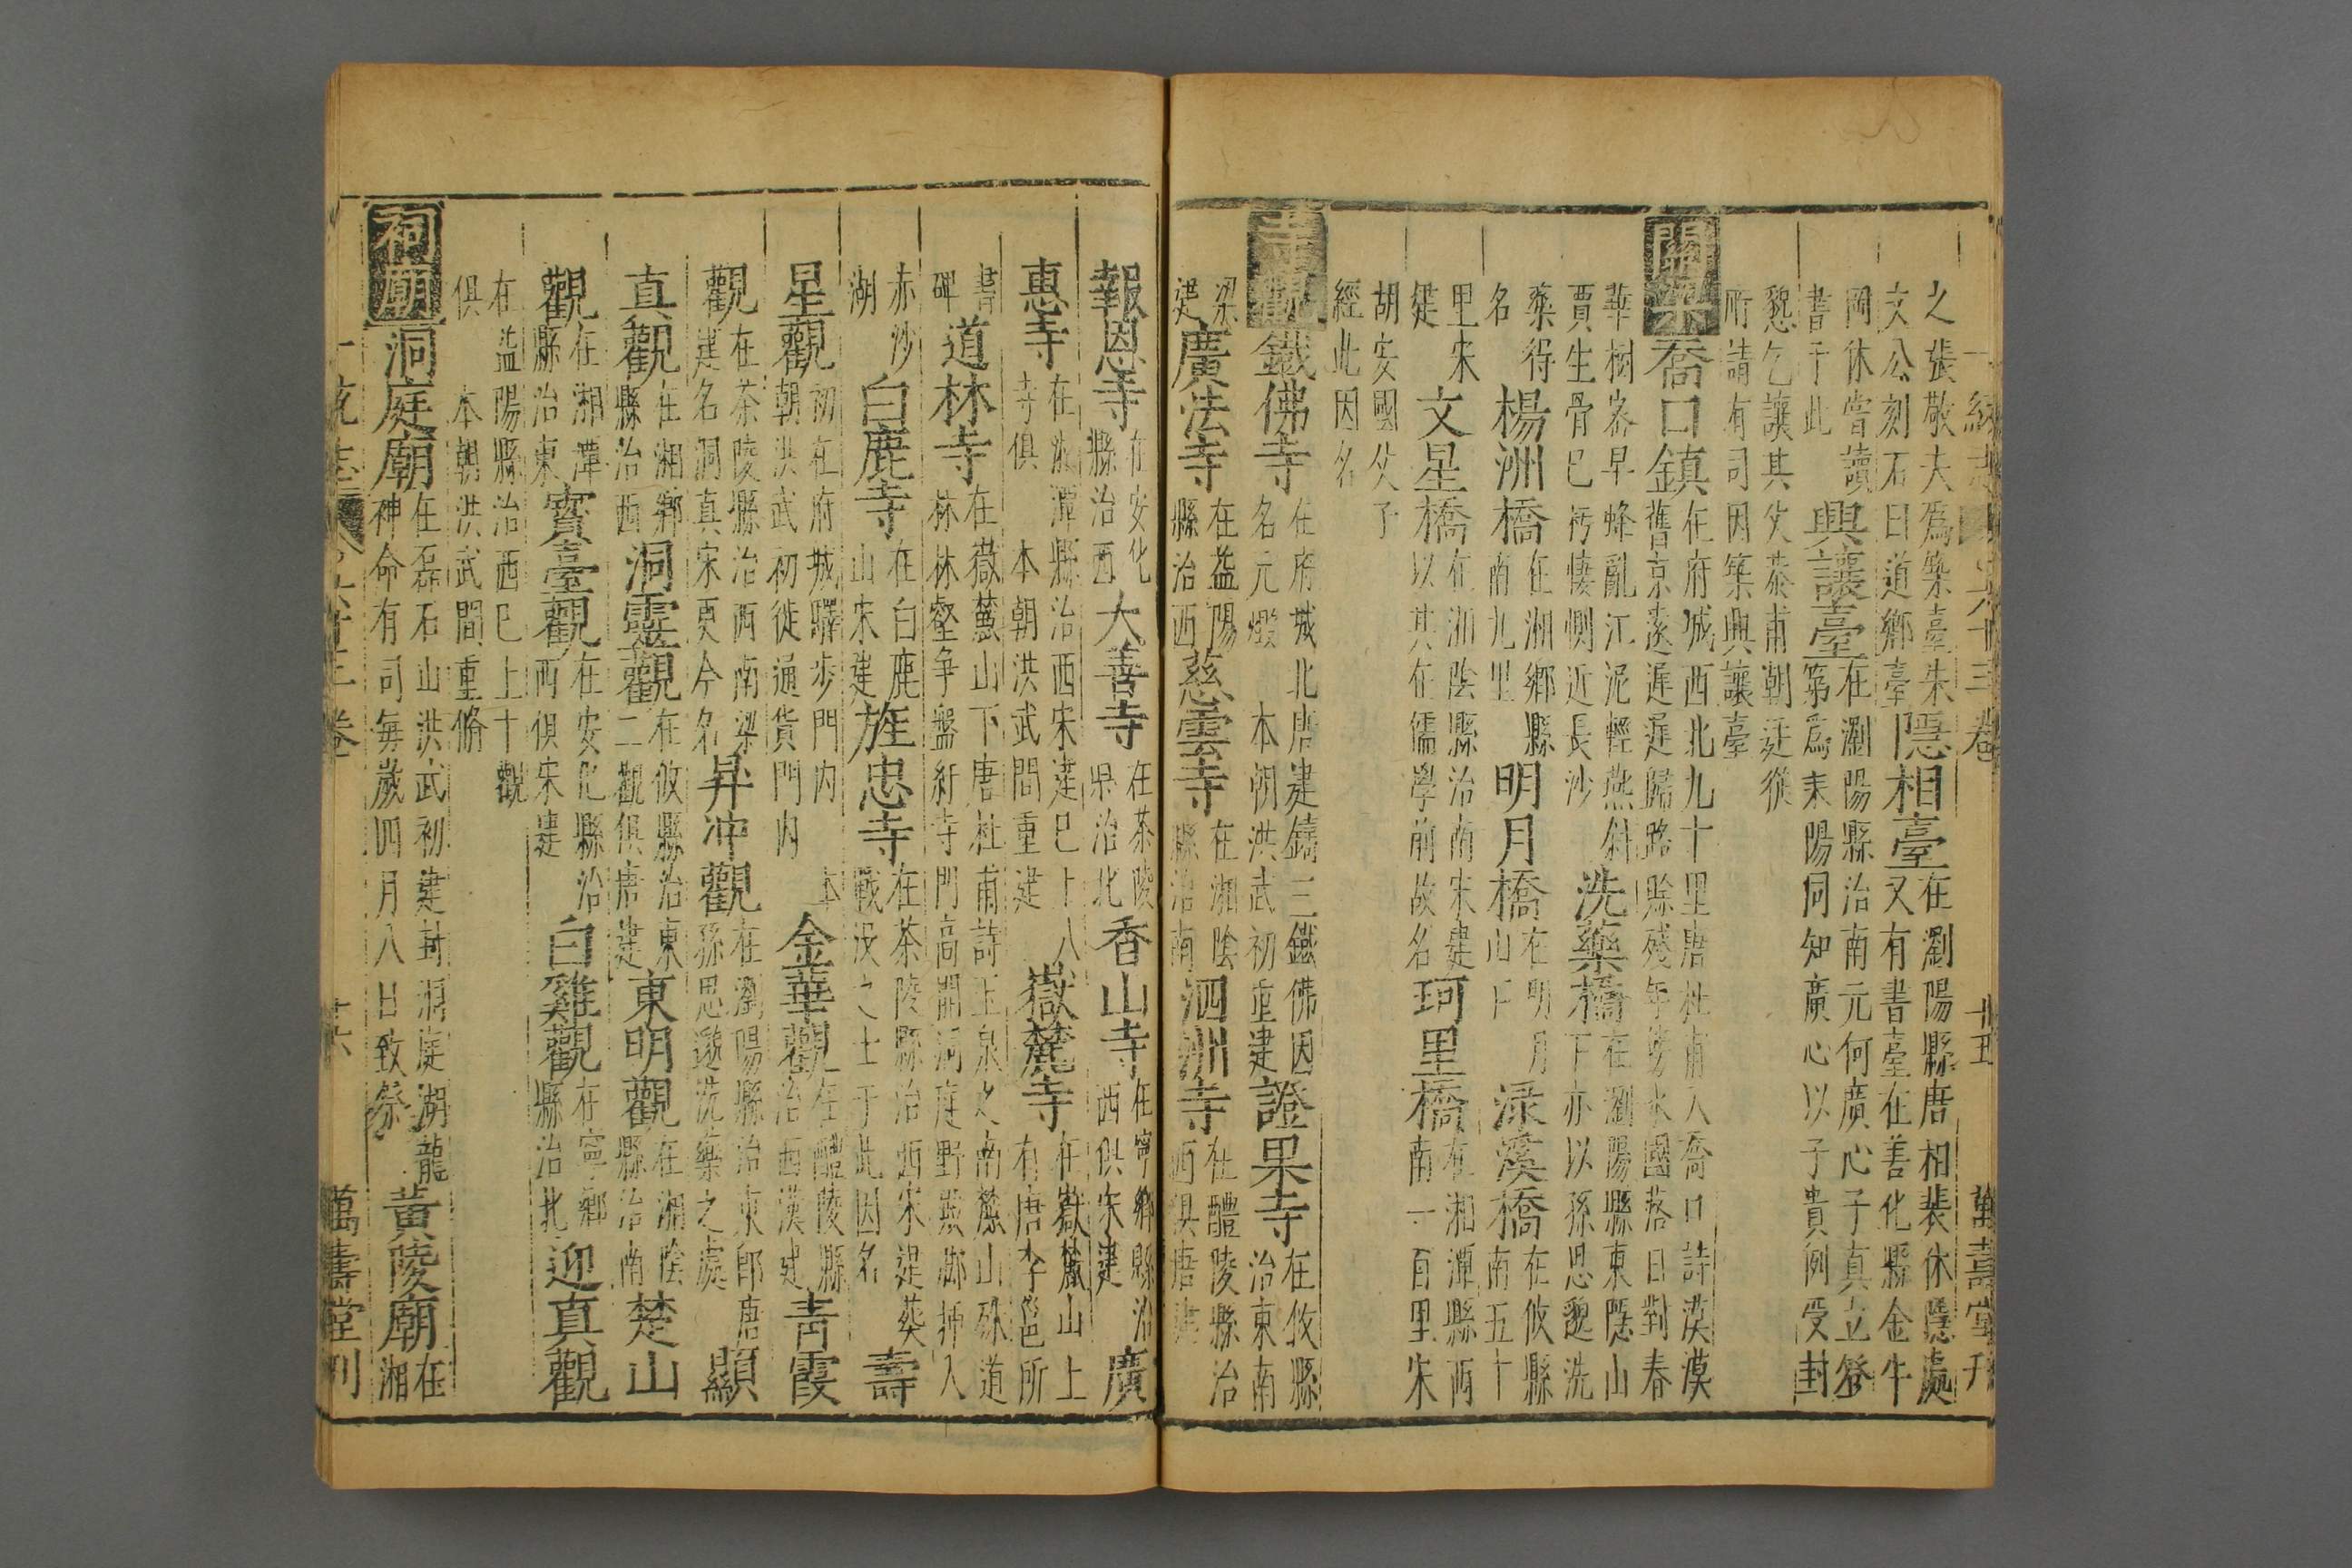 一統志 卷之六十三卷 廿五 萬壽堂刊
之張敬夫爲築臺朱
文公刻石曰道鄉臺
隱相臺
在瀏陽縣唐相裴休隱處
又有書臺在善化縣金牛
岡休嘗讀
書于此
興讓臺
在瀏陽縣治南元何廣心子真立登
第爲耒陽同知廣心以子貴例受封
懇乞讓其父恭甫朝廷從
所請有司因築興讓臺
關梁
喬口鎮
在府城西北九十里唐杜甫入喬口詩漠漠
舊京遠遲遲歸路賒殘年傍水國落日對春
華樹蜜早蜂亂江泥輕燕斜
賈生骨已朽悽惻近長沙
洗藥橋
在瀏陽縣東隱山
下亦以孫思邈洗
藥得
名
楊洲橋
在湘鄉縣
南九里
明月橋
在明月
山下
淥溪橋
在攸縣
南五十
里宋
建
文星橋
在湘陰縣治南宋建
以其在儒學前故名
珂里橋
在湘潭縣西
南一百里宋
胡安國父子
經此因名
寺觀
鐵佛寺
在府城北唐建鑄三鐵佛因
名元燬 本朝洪武初重建
證果寺
在攸縣
治東南
梁
建
廣法寺
在益陽
縣治西
慈雲寺
在湘陰
縣治南
泗洲寺
在醴陵縣治
西俱唐建
報恩寺
在安化
縣治西
大善寺
在茶陵
県治北
香山寺
在寧鄉縣治
西俱宋建
廣
惠寺
在湘潭縣治西宋建已上八
寺俱 本朝洪武間重建
嶽麓寺
在嶽麓山上
有唐李邕所
書
碑
道林寺
在嶽麓山下唐杜甫詩玉泉之南麓山殊道
林林壑爭盤紆寺門高開洞庭野殿脚揷入
赤沙
湖
白鹿寺
在白鹿
山宋建
旌忠寺
在茶陵縣治西宋建葵
戰没之士于此因名
壽
星觀
初在府城驛步門内 本
朝洪武初徙通貨門内
金華觀
在醴陵縣
治西漢建
青霞
觀
在茶陵縣治西南梁
建名洞真宋更今名
昇冲觀
在瀏陽縣治東即唐
孫思邈洗藥之處
顯
真觀
在湘鄉
縣治西
洞靈觀
在攸縣治東
二觀俱唐建
東明觀
在湘陰
縣治南
楚山
觀
在湘潭
縣治東
寳臺觀
在安化縣治
西俱宋建
白雞觀
在寧鄉
縣治北
迎真觀
在益陽縣治西已上十觀
俱 本朝洪武間重脩
祠廟
洞庭廟
在磊石山洪武初建封洞庭湖龍
神命有司每歲四月八日致祭
黄陵廟
在
湘
一統志 卷之六十三卷 廿六 萬壽堂刊